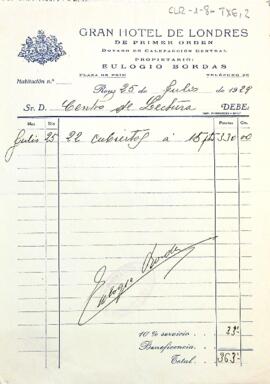 CLR-1-8-TXE,2
GRAN HOTEL DE LONDRES
DE PRIMER ORDEN
DOTADO DE CALEFACCIÓN CENTRAL
PROPIETARIO:
EULOGIO BORDAS
PLAZA DE PRIM TELÉFONO
Habitación n.º Reus 25 de Julio de 1929
Sr. D. Centro de Lectura DEBE:
Mes Día Pesetas Cts.
Julio 25 22 cubiertos á 15 pts 330 00
Eulogio Bordas
10% servicio 33'-
Beneficencia
Total 363'-